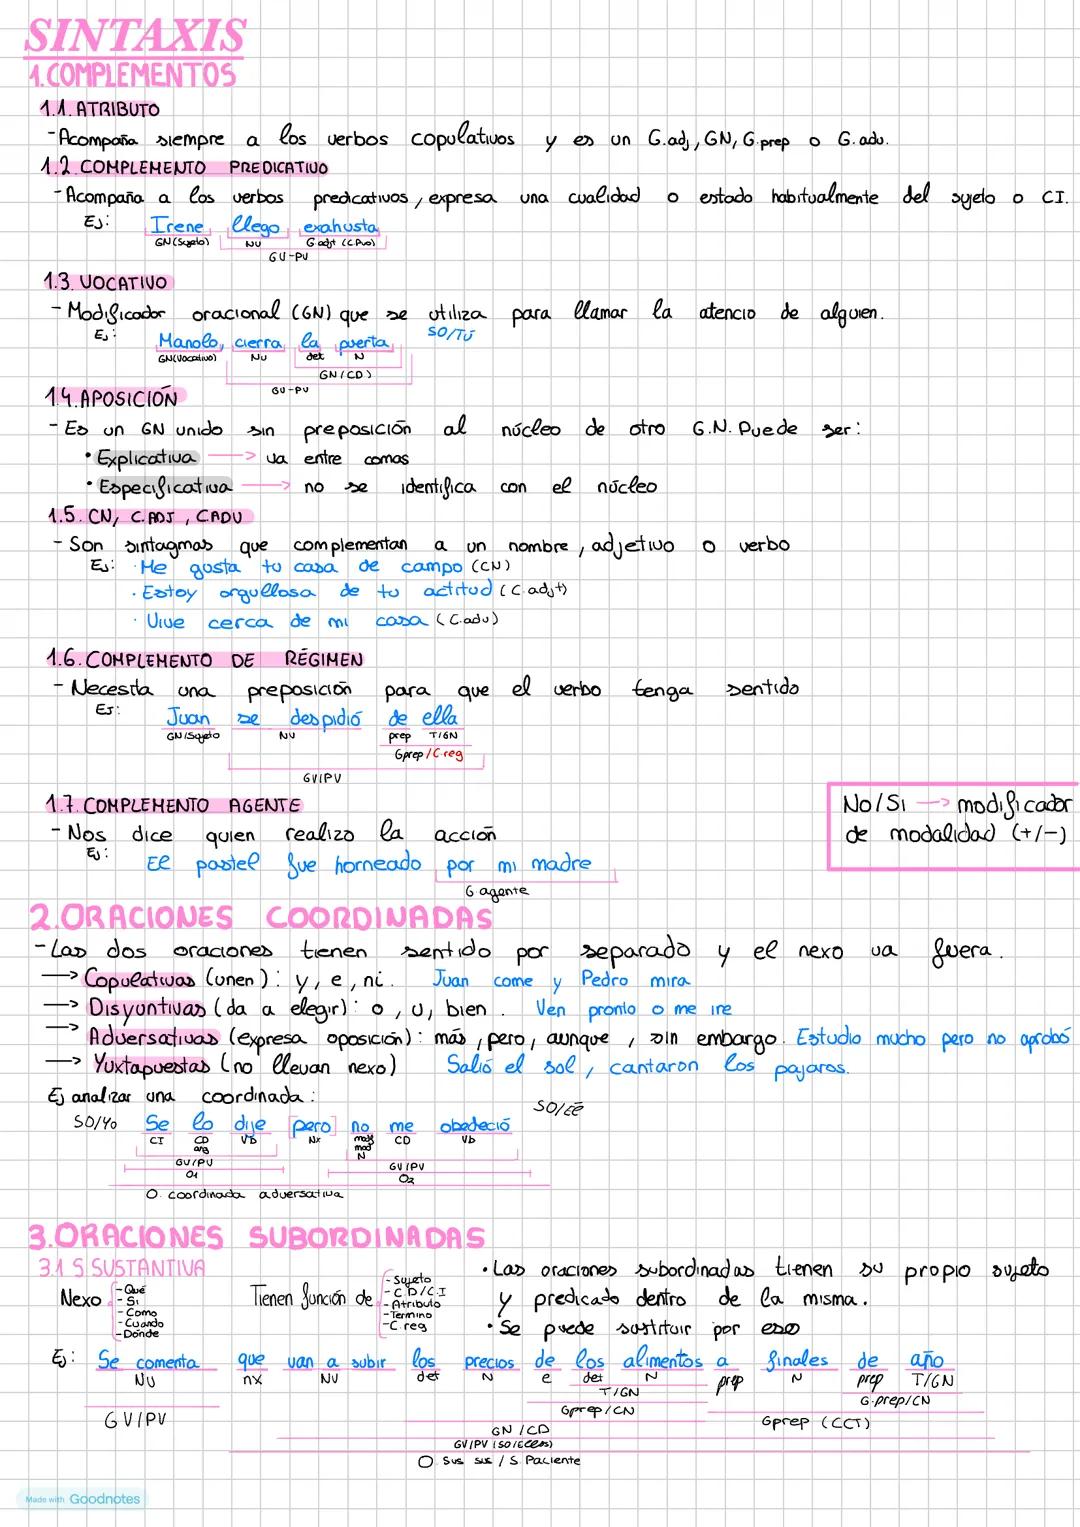 SINTAXIS
1.COMPLEMENTOS
1.1. ATRIBUTO
-Acompaña siempre a los verbos copulativos y es un G.adj, GN, G.prep o G.adv.
1.2. COMPLEMENTO PREDICATIVO
-Acompaña a los verbos predicativos, expresa una cualidad o estado habitualmente del sujeto o CI.
Ej: Irene llego exahusta
GN(Sujeto) NV G.adjt (C.Pvo)
GV-PV
1.3. VOCATIVO
- Modificador oracional (GN) que se utiliza para llamar la atencio de alguien.
Ej: Manolo, cierra la puerta SO/TÚ
GN(Vocativo) NV det N
GN(CD)
GV-PV
1.4. APOSICIÓN
- Es un GN unido sin preposición al núcleo de otro G.N. Puede ser:
• Explicativa → va entre comas
• Especificativa → no se identifica con el núcleo
1.5. CN, C.ADJ, C.ADV
- Son sintagmas que complementan a un nombre, adjetivo o verbo
Ej: · Me gusta tu casa de campo (CN)
· Estoy orgullosa de tu actitud (C.adjt)
· Vive cerca de mi casa (C.adv)
1.6. COMPLEMENTO DE RÉGIMEN
- Necesita una preposición para que el verbo tenga sentido
Ej: Juan se despidió de ella
GN/Sujeto NV prep T/GN
Gprep/C.reg
GV/PV
1.7. COMPLEMENTO AGENTE
- Nos dice quien realizo la acción
Ej: El pastel fue horneado por mi madre
G.agente
No/Si → modificador
de modalidad (+/-)
2.ORACIONES COORDINADAS
- Las dos oraciones tienen sentido por separado y el nexo va fuera.
→ Copulativas (unen): y, e, ni. Juan come y Pedro mira
→ Disyuntivas (da a elegir): o, u, bien. Ven pronto o me ire
→ Adversativas (expresa oposición): más, pero, aunque, sin embargo. Estudio mucho pero no aprobó
→ Yuxtapuestas (no llevan nexo) Salió el sol, cantaron los pajaros.
Ej analizar una coordinada:
SO/Yo Se lo dije [pero] no me obedeció SO/Él
CI CD VB Nx mod CD Vb
GV/PV GV/PV
O1 O2
O. coordinada adversativa
3.ORACIONES SUBORDINADAS
3.1 S.SUSTANTIVA
Nexo
-Qué
-Si
-Como
-Cuando
-Donde
Tienen función de
-Sujeto
-CD/C.I
-Atributo
-Termino
-C.reg
• Las oraciones subordinadas tienen su propio sujeto
y predicado dentro de la misma.
• Se puede sustituir por eso
Ej: Se comenta que van a subir los precios de los alimentos a finales de año
NV nx NV det N e det N prep N prep T/GN
T/GN G.prep/CN
GV/PV Gprep/CN Gprep (CCT)
GN/CD
GV/PV (SO/Ellos)
O. Sus sus / S. Paciente
Made with Goodnotes